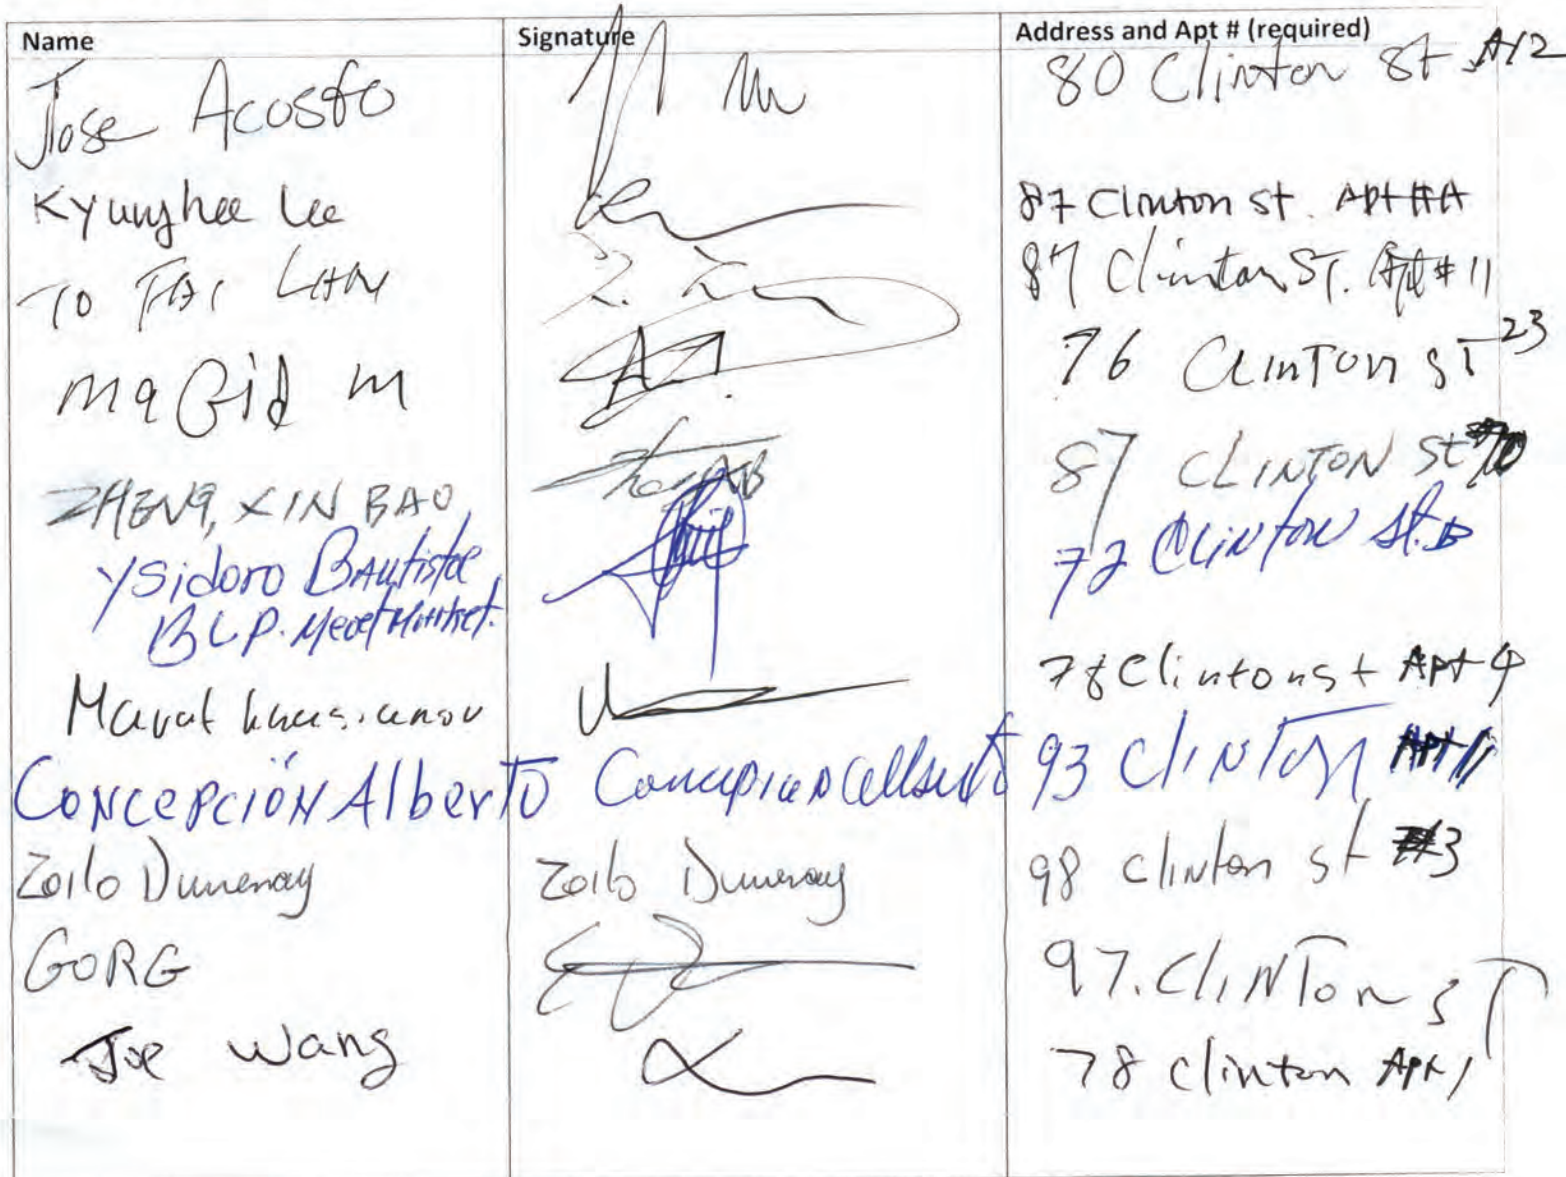 Name Signature Address and Apt # (required)
Jose Acosta 80 Clinton St A12
Kyunghee Lee 87 Clinton St. Apt #A
TO FAI LAM 87 Clinton ST. Apt # 11
maGid m 76 CLINTON ST 23
ZHENG, XIN BAO 87 CLINTON St
Ysidoro BAutista 72 Clinton St. B
BLP. Meat Market.
Marat 78 Clinton st Apt 4
CONCEPCIÓN Alberto Concepcion Alberto 93 CLINTON Apt 11
Zoilo Dumenay Zoilo Dumenay 98 clinton st #3
GORG 97. CLINTON ST
Joe Wang 78 clinton Apt 1